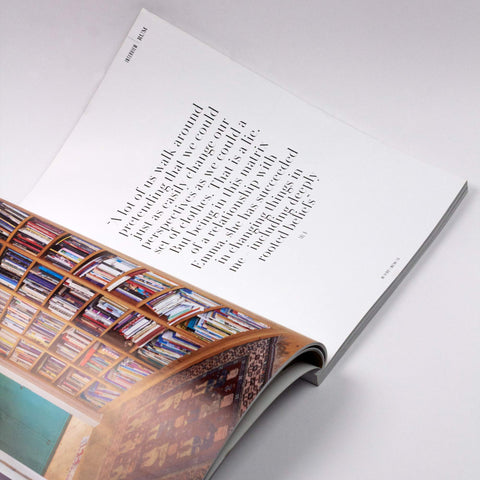 INTERVIEW RUM
"A lot of us walk around
pretending that we could
just as easily change our
perspectives as we could a
set of clothes. That is a lie.
But being in this matrix
of a relationship with
Emma, she has succeeded
in changing things in
me – including deeply
rooted beliefs"